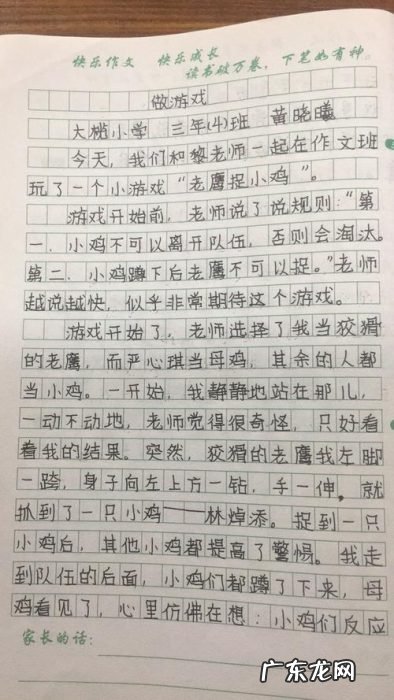 快乐作文 快乐成长
读书破万卷，下笔如有神。
做游戏
大桃小学 三年(4)班 黄晓曦
今天，我们和黎老师一起在作文班
玩了一个小游戏“老鹰捉小鸡”。
游戏开始前，老师说了说规则：“第
一．小鸡不可以离开队伍，否则会淘汰。
第二．小鸡蹲下后老鹰不可以捉。”老师
越说越快，似乎非常期待这个游戏。
游戏开始了，老师选择了我当狡猾
的老鹰，而严心琪当母鸡，其余的人都
当小鸡。一开始，我静静地站在那儿，
一动不动地，老师觉得很奇怪，只好看
着我的结果。突然，狡猾的老鹰我左脚
一跨，身子向左上方一钻，手一伸，就
抓到了一只小鸡——林焯添。捉到一只
小鸡后，其他小鸡都提高了警惕。我走
到队伍的后面，小鸡们都蹲了下来，母
鸡看见了，心里仿佛在想：小鸡们反应
家长的话：
广东龙网